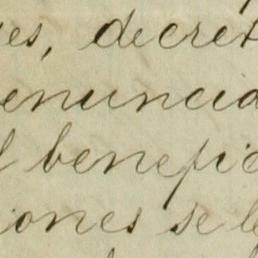 es, decret
enuncia
l benefic
iones se l